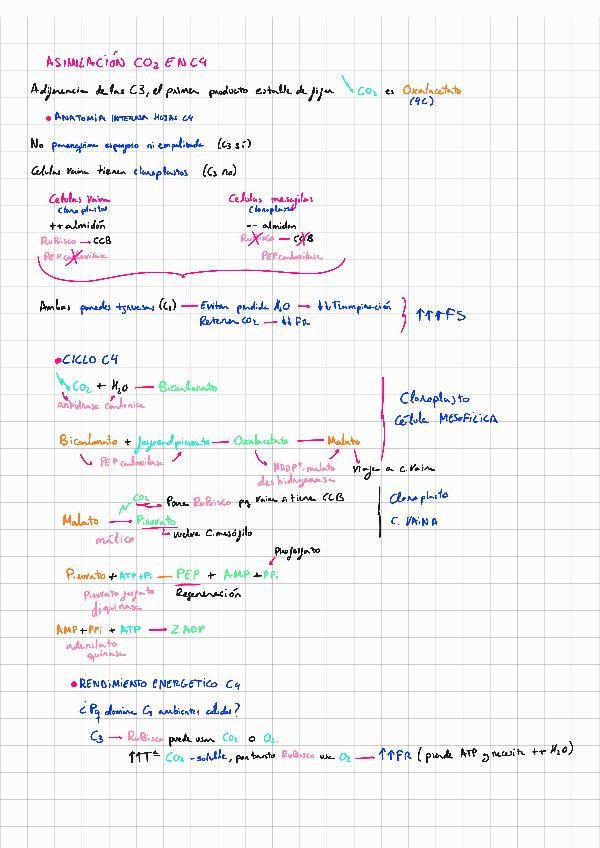 ASIMILACIÓN CO2 EN C4
A diferencia de las C3, el primer producto estable de fijar CO2 es Oxalacetato
(4C)
• ANATOMIA INTERNA HOJAS C4
No parenquima esponjoso ni empalizada (C3 sí)
Celulas vaina tienen cloroplastos (C3 no)
Celulas vaina Celulas mesofilas
cloroplastos cloroplastos
++ almidón -- almidon
RuBisco → CCB RuBisco — CCB
PEP carboxilasa PEP carboxilasa
Ambas paredes + gruesas (C4) — Evitar perdida H2O → ↓↓ Transpiración
Retener CO2 → ↓↓ FR
↑↑↑FS
• CICLO C4
CO2 + H2O — Bicarbonato
anhidrasa carbonica
Cloroplasto
Célula MESOFILICA
Bicarbonato + fosfoenolpiruvato — Oxalacetato — Malato
PEP carboxilasa NADP+-malato deshidrogenasa
Viaje a C. Vaina
CO2 Para RuBisco pq vaina si tiene CCB
Malato → Piruvato
málico vuelve C. mesófilo
Cloroplasto
C. VAINA
Pirofosfato
Piruvato + ATP + Pi — PEP + AMP + PPi
Piruvato fosfato diquinasa Regeneración
AMP + PPi + ATP → 2 ADP
adenilato quinasa
• RENDIMIENTO ENERGETICO C4
¿Pq domina C4 ambientes cálidos?
C3 → RuBisco puede usar CO2 o O2.
↑↑Tª CO2 - soluble, por tanto RuBisco use O2 → ↑↑FR (pierde ATP y necesita ++ H2O)